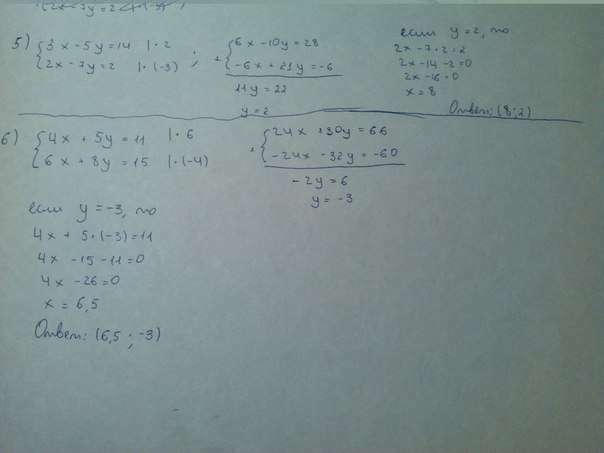 5) { 3x - 5y = 14 | · 2 ; + { 6x - 10y = 28
{ 2x - 7y = 2 | · (-3) { -6x + 21y = -6
11y = 22
y = 2
если y = 2, то
2x - 7 · 2 = 2
2x - 14 - 2 = 0
2x - 16 = 0
x = 8
Ответ: (8; 2)
6) { 4x + 5y = 11 | · 6 + { 24x + 30y = 66
{ 6x + 8y = 15 | · (-4) { -24x - 32y = -60
- 2y = 6
y = -3
если y = -3, то
4x + 5 · (-3) = 11
4x - 15 - 11 = 0
4x - 26 = 0
x = 6,5
Ответ: (6,5 ; -3)